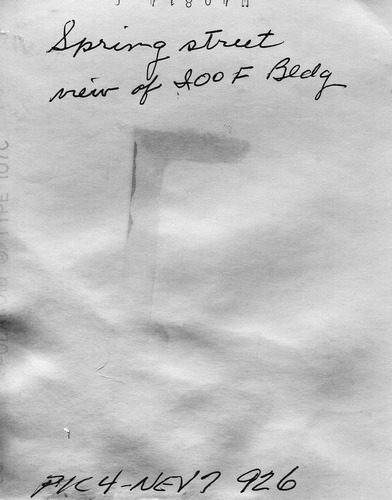 Spring street
view of IOOF Bldg
PIC4-NEV7 926